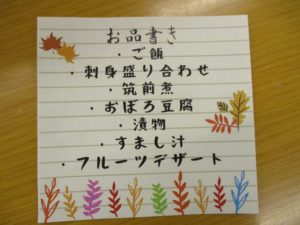 お品書き
・ご飯
・刺身盛り合わせ
・筑前煮
・おぼろ豆腐
・漬物
・すまし汁
・フルーツデザート